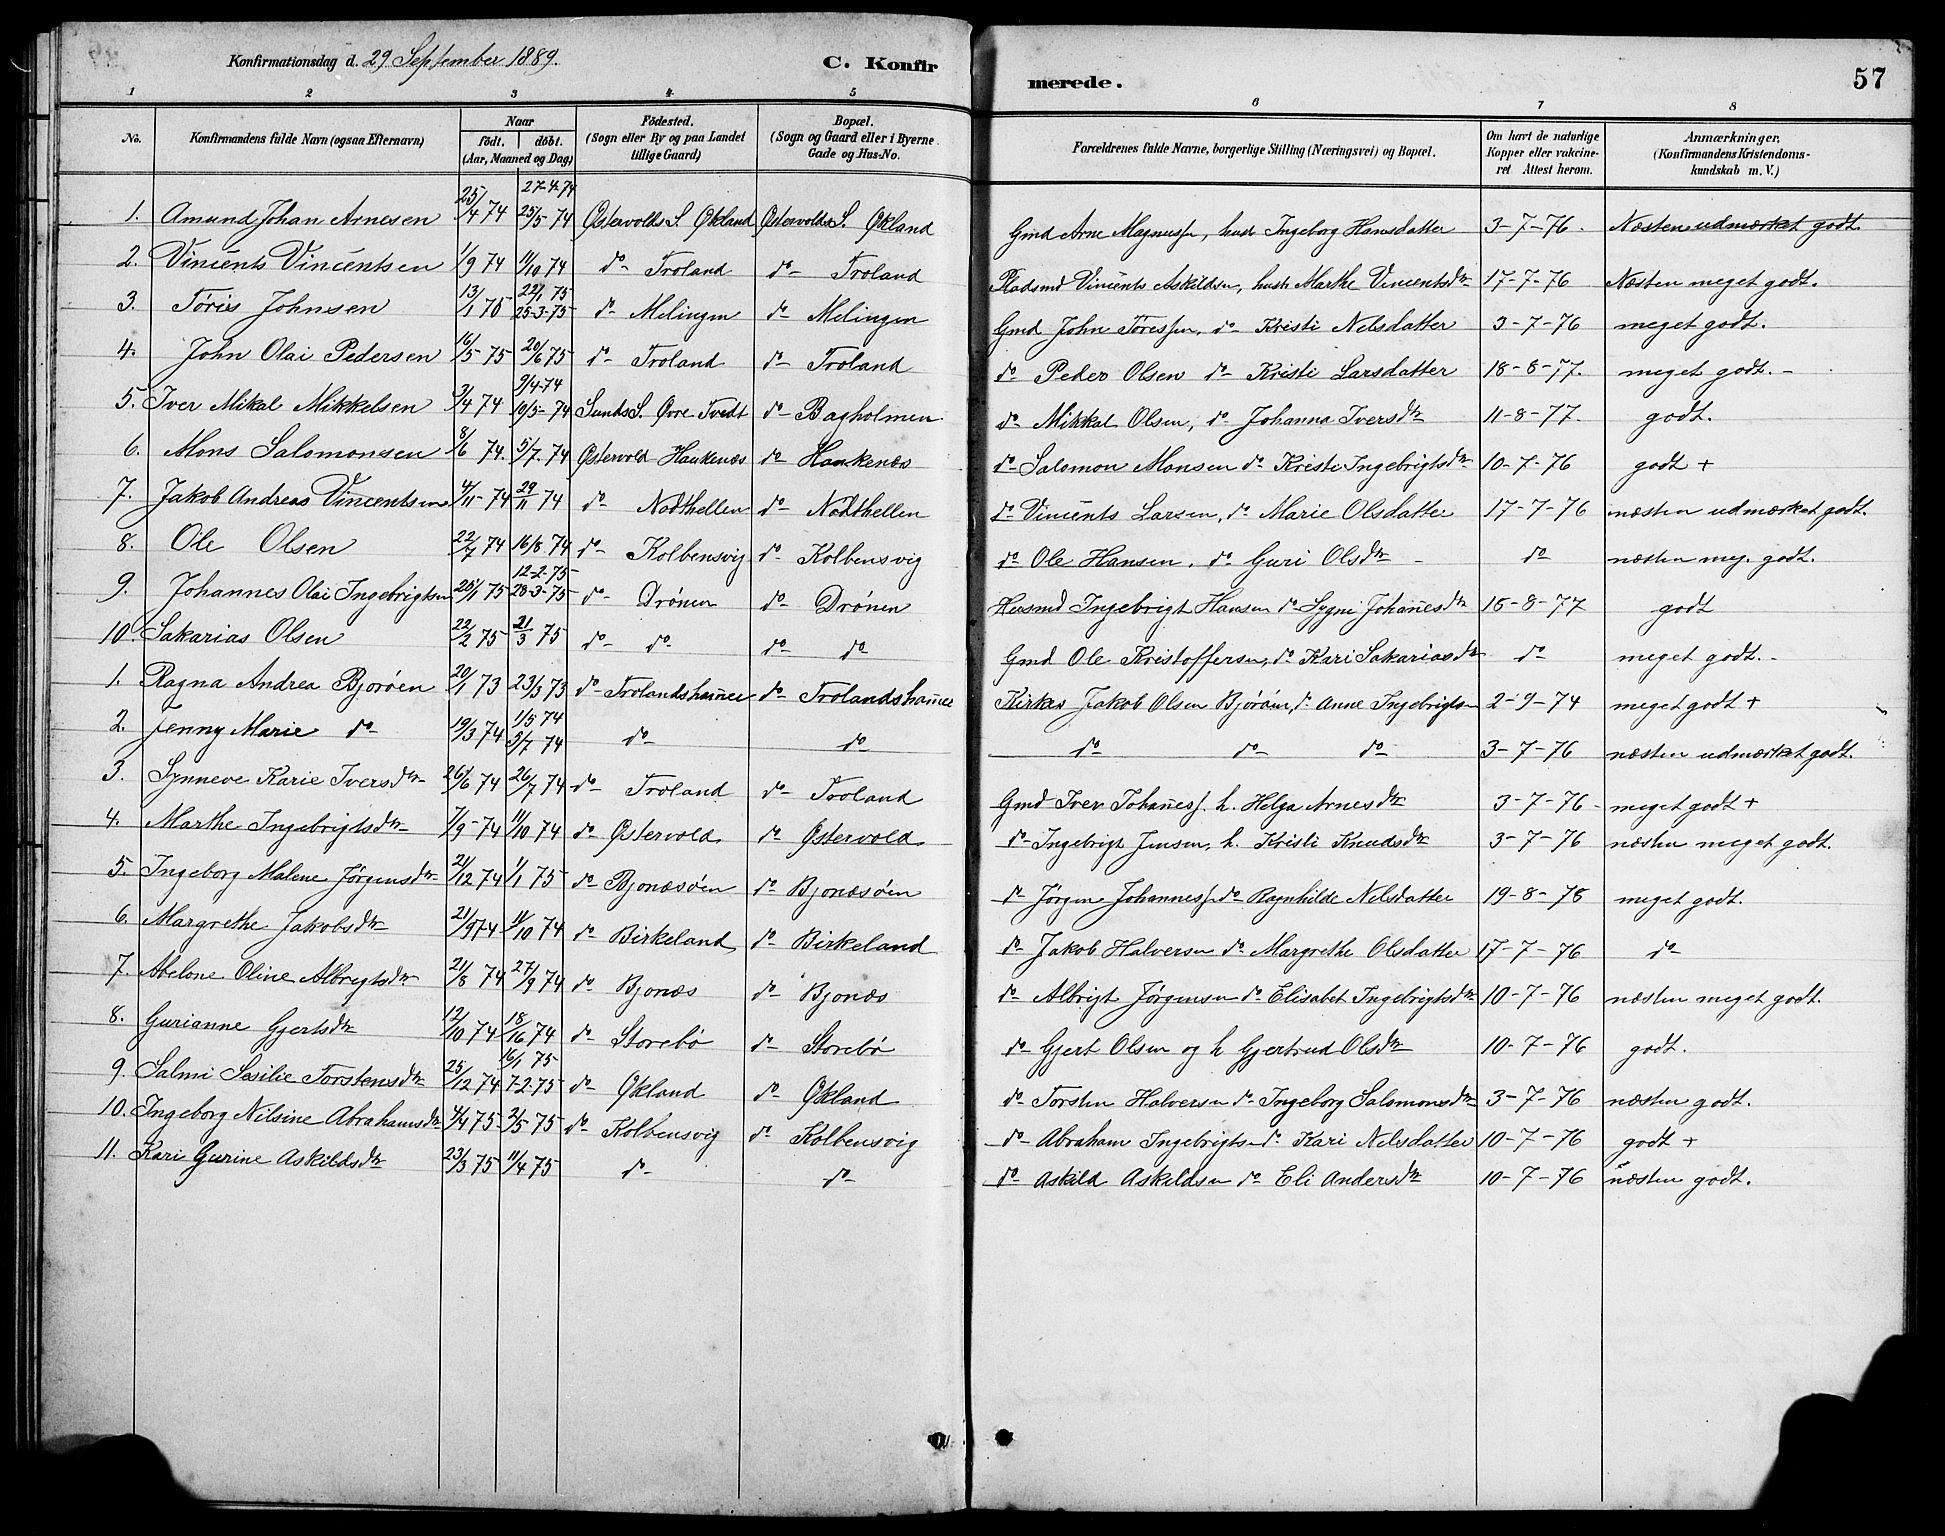 Konfirmationsdag d. 29 September 1889.
C. Konfir
merede.
57
1 2 3 4 5 6 7 8
No. Konfirmandens fulde Navn (ogsaa Efternavn) Naar födt. döbt. (Aar, Maaned og Dag) Födested. (Sogn eller By og paa Landet tillige Gaard) Bopæl. (Sogn og Gaard eller i Byerne Gade og Hus-No. Forældrenes fulde Navne, borgerlige Stilling (Næringsvei) og Bopæl. Om havt de naturlige Kopper eller vakcineret Attest herom. Anmærkninger, (Konfirmandens Kristendomskundskab m. V.)
1. Amund Johan Arnesen 25/4 74 27-4-74 25/5 74 Østervolds S. Økland Østervolds S. Økland Gmd Arne Magnuss., hust Ingeborg Hansdatter 3-7-76. Næsten udmærket godt.
2. Vincents Vincentsen 1/9 74 11/10 74 do Troland do Troland Pladsmd Vincents Askildsen, hust Marthe Vincentsdtr 17-7-76 Næsten meget godt.
3. Töris Johnsen 13/1 75 22/1 75 25-3-75 do Melingen do Melingen Gmd John Töressen, do Kristi Nelsdatter 3-7-76 meget godt.
4. John Olai Pedersen 16/5 75 20/6 75 do Troland do Troland do Peder Olsen do Kristi Larsdatter 18-8-77. meget godt.
5. Iver Mikal Mikkelsen 3/4 74 9/4-74 10/5-74 Sunds S. Øvre Tvedt do Bagholmen do Mikkal Olsen, do Johanna Iversdtr 11-8-77. godt.
6. Mons Salomonsen 8/6 74. 5/7. 74 Østervold Haukenæs do Haukenæs do Salomon Monsen do Kristi Ingebrigtsdtr 10-7-76 godt +
7. Jakob Andreas Vincentsen 4/11-74 29/11 74 do Nodthellen do Nodthellen do Vincents Larsen, do Marie Olsdatter 17-7-76 næsten udmærket godt.
8. Ole Olsen 22/7 74 16/8 74 do Kolbensvig do Kolbensvig do Ole Hansen, do Guri Olsdtr do næsten meg. godt.
9. Johannes Olai Ingebrigtsen 25/1 75 12-2-75 28-3-75 do Drönen do Drönen Husmd Ingebrigt Hansen do Sygni Johannesdtr 18-8-77 godt
10. Sakarias Olsen 22/2 75 21/3 75 do do do do Gmd Ole Kristoffersen, do Kari Sakariasdtr do meget godt.
1. Ragna Andrea Bjoröen 20/1 73 23/3 73 do Trolandshamer do Trolandshamer Kirkes Jakob Olsen Björöen, do Anne Ingebrigts 2-9-74 meget godt +
2. Jenny Marie do 19/3 74 1/5 74 5/7 74 do do do do do 3-7-76 næsten udmærket godt.
3. Synneve Karie Iversdtr 26/6 74 26/7 74 do Troland do Troland Gmd Iver Johaness. h. Helga Arnesdtr 3-7-76 meget godt +
4. Marthe Ingebrigtsdtr 7/9-74 11/10 74 do Østervold do Østervold do Ingebrigt Jensen, h. Kristi Knudsdtr 3-7-76 næsten meget godt.
5. Ingeborg Malene Jörgensdtr 21/12 74 1/1 75 do Bjonæsöen do Bjonæsöen do Jörgen Johanness. do Ragnhilde Nelsdatter 19-8-78 meget godt.
6. Margrethe Jakobsdtr 21/9 74 11/10 74 do Birkeland do Birkeland do Jakob Halversen do Margrethe Olsdatter 17-7-76 do
7. Abelone Oline Albrigtsdtr 21/8 74 27/9 74 do Bjonæs do Bjonæs do Albrigt Jörgensen do Elisabet Ingebrigtsdtr 10-7-76 næsten meget godt.
8. Gurianne Gjertsdtr 12/10 74 18/10 74 do Storebö do Storebö do Gjert Olsen og h Gjertrud Olsdtr 10-7-76 godt.
9. Salmi Sesilie Torstensdtr 25/12 74 16/1 75 7-2-75 do Økland do Økland do Torsten Halversen do Ingeborg Salomonsdtr 3-7-76 næsten godt.
10. Ingeborg Nilsine Abrahamsdtr 4/4 75 2/5 75 do Kolbensvig do Kolbensvig do Abraham Ingebrigts do Kari Nelsdatter 10-7-76 godt +
11. Kari Gurine Askildsdtr 23/3 75 11/4 75 do do do Askild Askildsen do Eli Andersdtr 10-7-76 næsten godt.